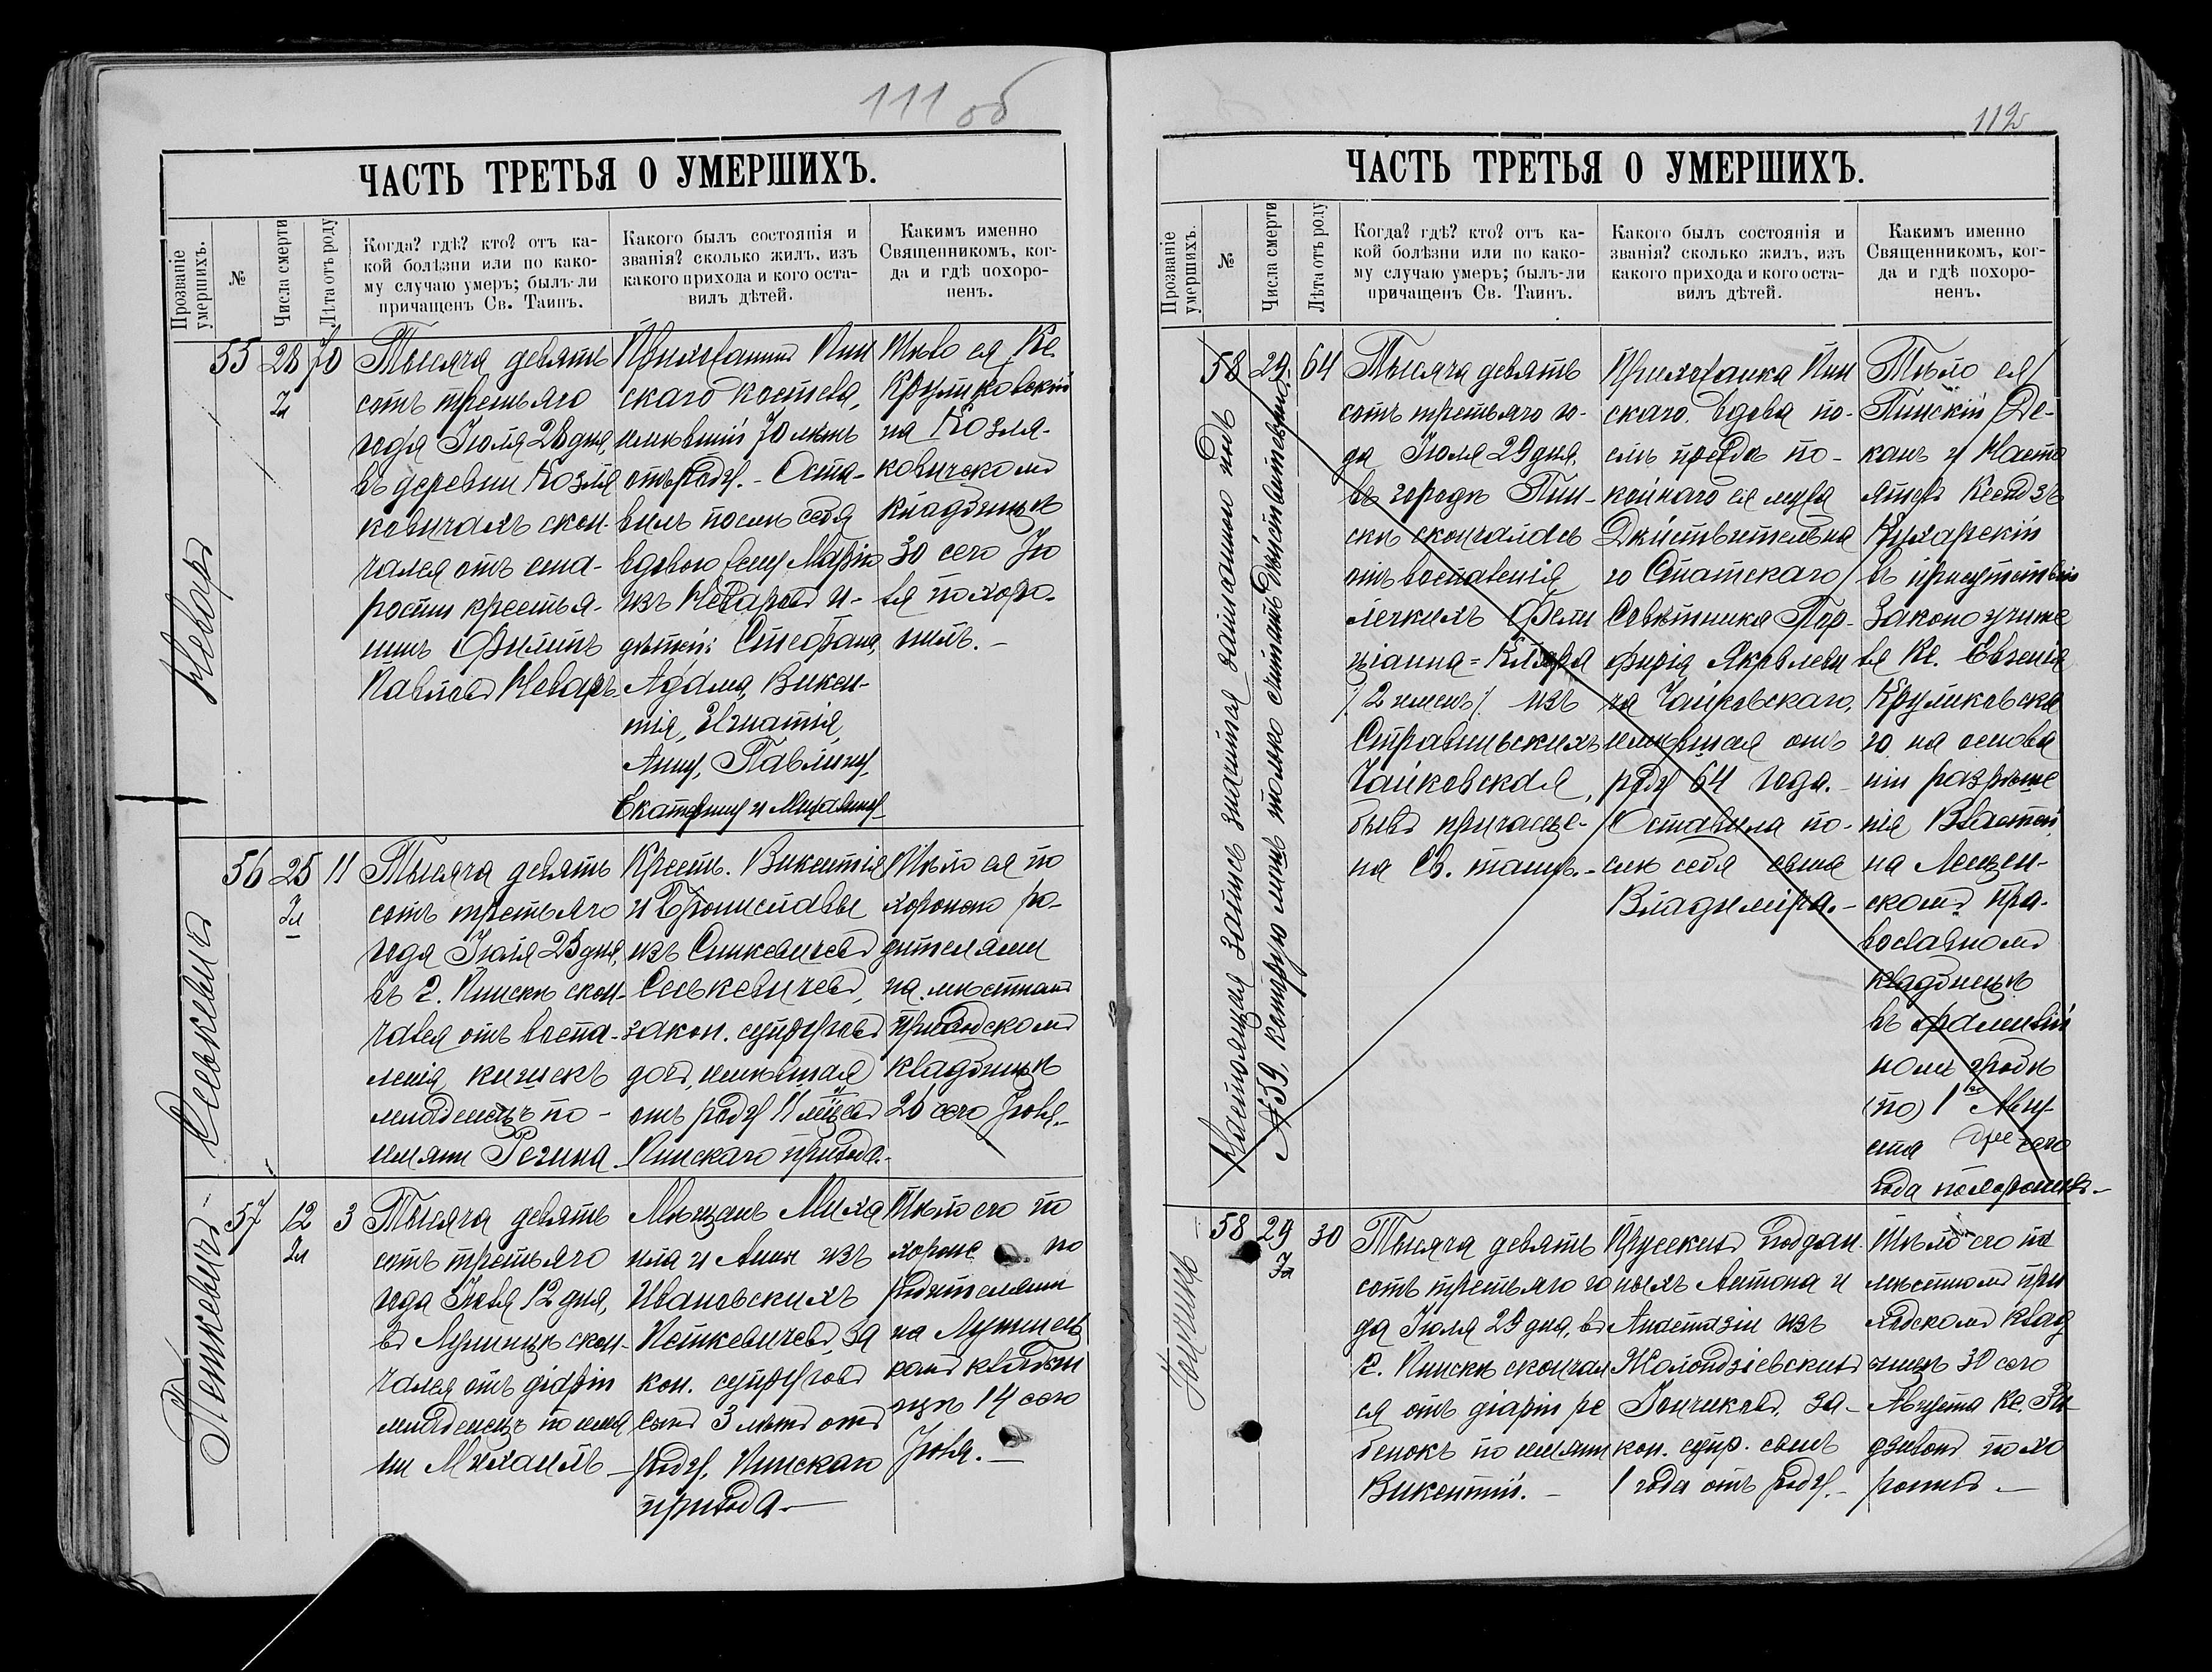 111 об
ЧАСТЬ ТРЕТЬЯ О УМЕРШИХЪ.
Прозваніе умершихъ.
№
Числа смерти
Лѣта отъ роду
Когда? гдѣ? кто? отъ ка-
кой болѣзни или по како-
му случаю умеръ; былъ-ли
причащенъ Св. Таинъ.
Какого былъ состоянія и
званія? сколько жилъ, изъ
какого прихода и кого оста-
вилъ дѣтей.
Какимъ именно
Священникомъ, ког-
да и гдѣ похоро-
ненъ.
Неваръ
55
28
Іл
70
Тысяча девять
сотъ третьяго
года Іюля 28 дня,
въ деревни Козля
ковичахъ скон-
чался отъ ста-
рости крестья-
нинъ Филиппъ
Павловъ Неваръ
Прихожанинъ Пин
скаго костела,
имѣвшій 70 лѣтъ
отъ роду. - Оста-
вилъ послѣ себя
вдовою жену Марію
изъ Неваровъ и
дѣтей: Стефана,
Адама, Викен-
тія, Игнатія,
Анну, Павлину,
Екатерину и Михалину
Тѣло ея Кс.
Круликовскій
на Козля-
ковичскомъ
кладбищѣ
30 сего Ію
ля похоро-
нилъ. -
Сенькевичъ
56
25
Іл
11
Тысяча девять
сотъ третьяго
года Іюля 25 дня,
въ г. Пинскѣ скон-
чался отъ воспа-
ленія кишекъ
младенецъ по
имени Регина
Крест. Викентія
и Брониславы
изъ Синкевичевъ
Сенькевичевъ,
закон. супруговъ
дочь, имѣвшая
отъ роду 11 мѣсцевъ
Пинскаго прихода.
Тѣло ея по
хоронено ро-
дителями
на мѣстномъ
приходскомъ
кладбищѣ
26 сего Іюля.
Петкевичъ
57
12
Іл
3
Тысяча девять
сотъ третьяго
года Іюля 12 дня,
въ Лунинцѣ скон-
чался отъ діаріи
младенецъ по име
ни Михаилъ
Мѣщанъ Миха
ила и Анны изъ
Ивановскихъ
Петкевичевъ, за
кон. супруговъ
сынъ 3 лѣтъ отъ
роду, Пинскаго
прихода.
Тѣло его по
хороне но
родителями
на Лунинец
комъ кладби
щѣ 14 сего
Іюля. -
112
ЧАСТЬ ТРЕТЬЯ О УМЕРШИХЪ.
Прозваніе умершихъ.
№
Числа смерти
Лѣта отъ роду
Когда? гдѣ? кто? отъ ка-
кой болѣзни или по како-
му случаю умеръ; былъ-ли
причащенъ Св. Таинъ.
Какого былъ состоянія и
званія? сколько жилъ, изъ
какого прихода и кого оста-
вилъ дѣтей.
Какимъ именно
Священникомъ, ког-
да и гдѣ похоро-
ненъ.
Настоящая запись значится записанною подъ
№ 59, которую лишь только считать дѣйствительною.
58
29
64
Тысяча девять
сотъ третьяго го-
да Іюля 29 дня,
въ городѣ Пин-
скѣ скончалась
отъ воспаленія
легкихъ Фели
ціанна-Клара
/2 именъ/ изъ
Стравинскихъ
Чайковская,
бывъ причаще-
на Св. таинъ. -
Прихожанка Пин
скаго, вдова по-
слѣ по-
койнаго ея мужа
Дѣйствительна
го Статскаго
Совѣтника Пор-
фирія Яковлеви
ча Чайковскаго,
имѣвшая отъ
роду 64 года. -
Оставила по-
слѣ себя сына
Владиміра. -
Тѣло ея
Пинскій Де-
канъ и Насто
ятель Ксендзъ
Кухарскій
въ присутствіи
Законоучите
ля Кс. Евгенія
Круликовска
го на основа
ніи разрѣше
нія Властей
на Лещен-
скомъ пра-
вославномъ
кладбищѣ
въ фамилій
номъ гробѣ
(по) 1го Авгу
ста сего
года похоронилъ. -
Гончикъ
58
29
Іл
30
Тысяча девять
сотъ третьяго го
да Іюля 29 дня, въ
г. Пинскѣ скончал
ся отъ діаріи ре
бенокъ по имени
Викентій. -
Прусскихъ поддан
ныхъ Антона и
Анастазіи изъ
Жолондзіевскихъ
Гончиковъ, за-
кон. супр. сынъ
1 года отъ роду. -
Тѣло его на
мѣстномъ при
ходскомъ клад
бищѣ 30 сего
Августа Кс.
похо
ронилъ. -